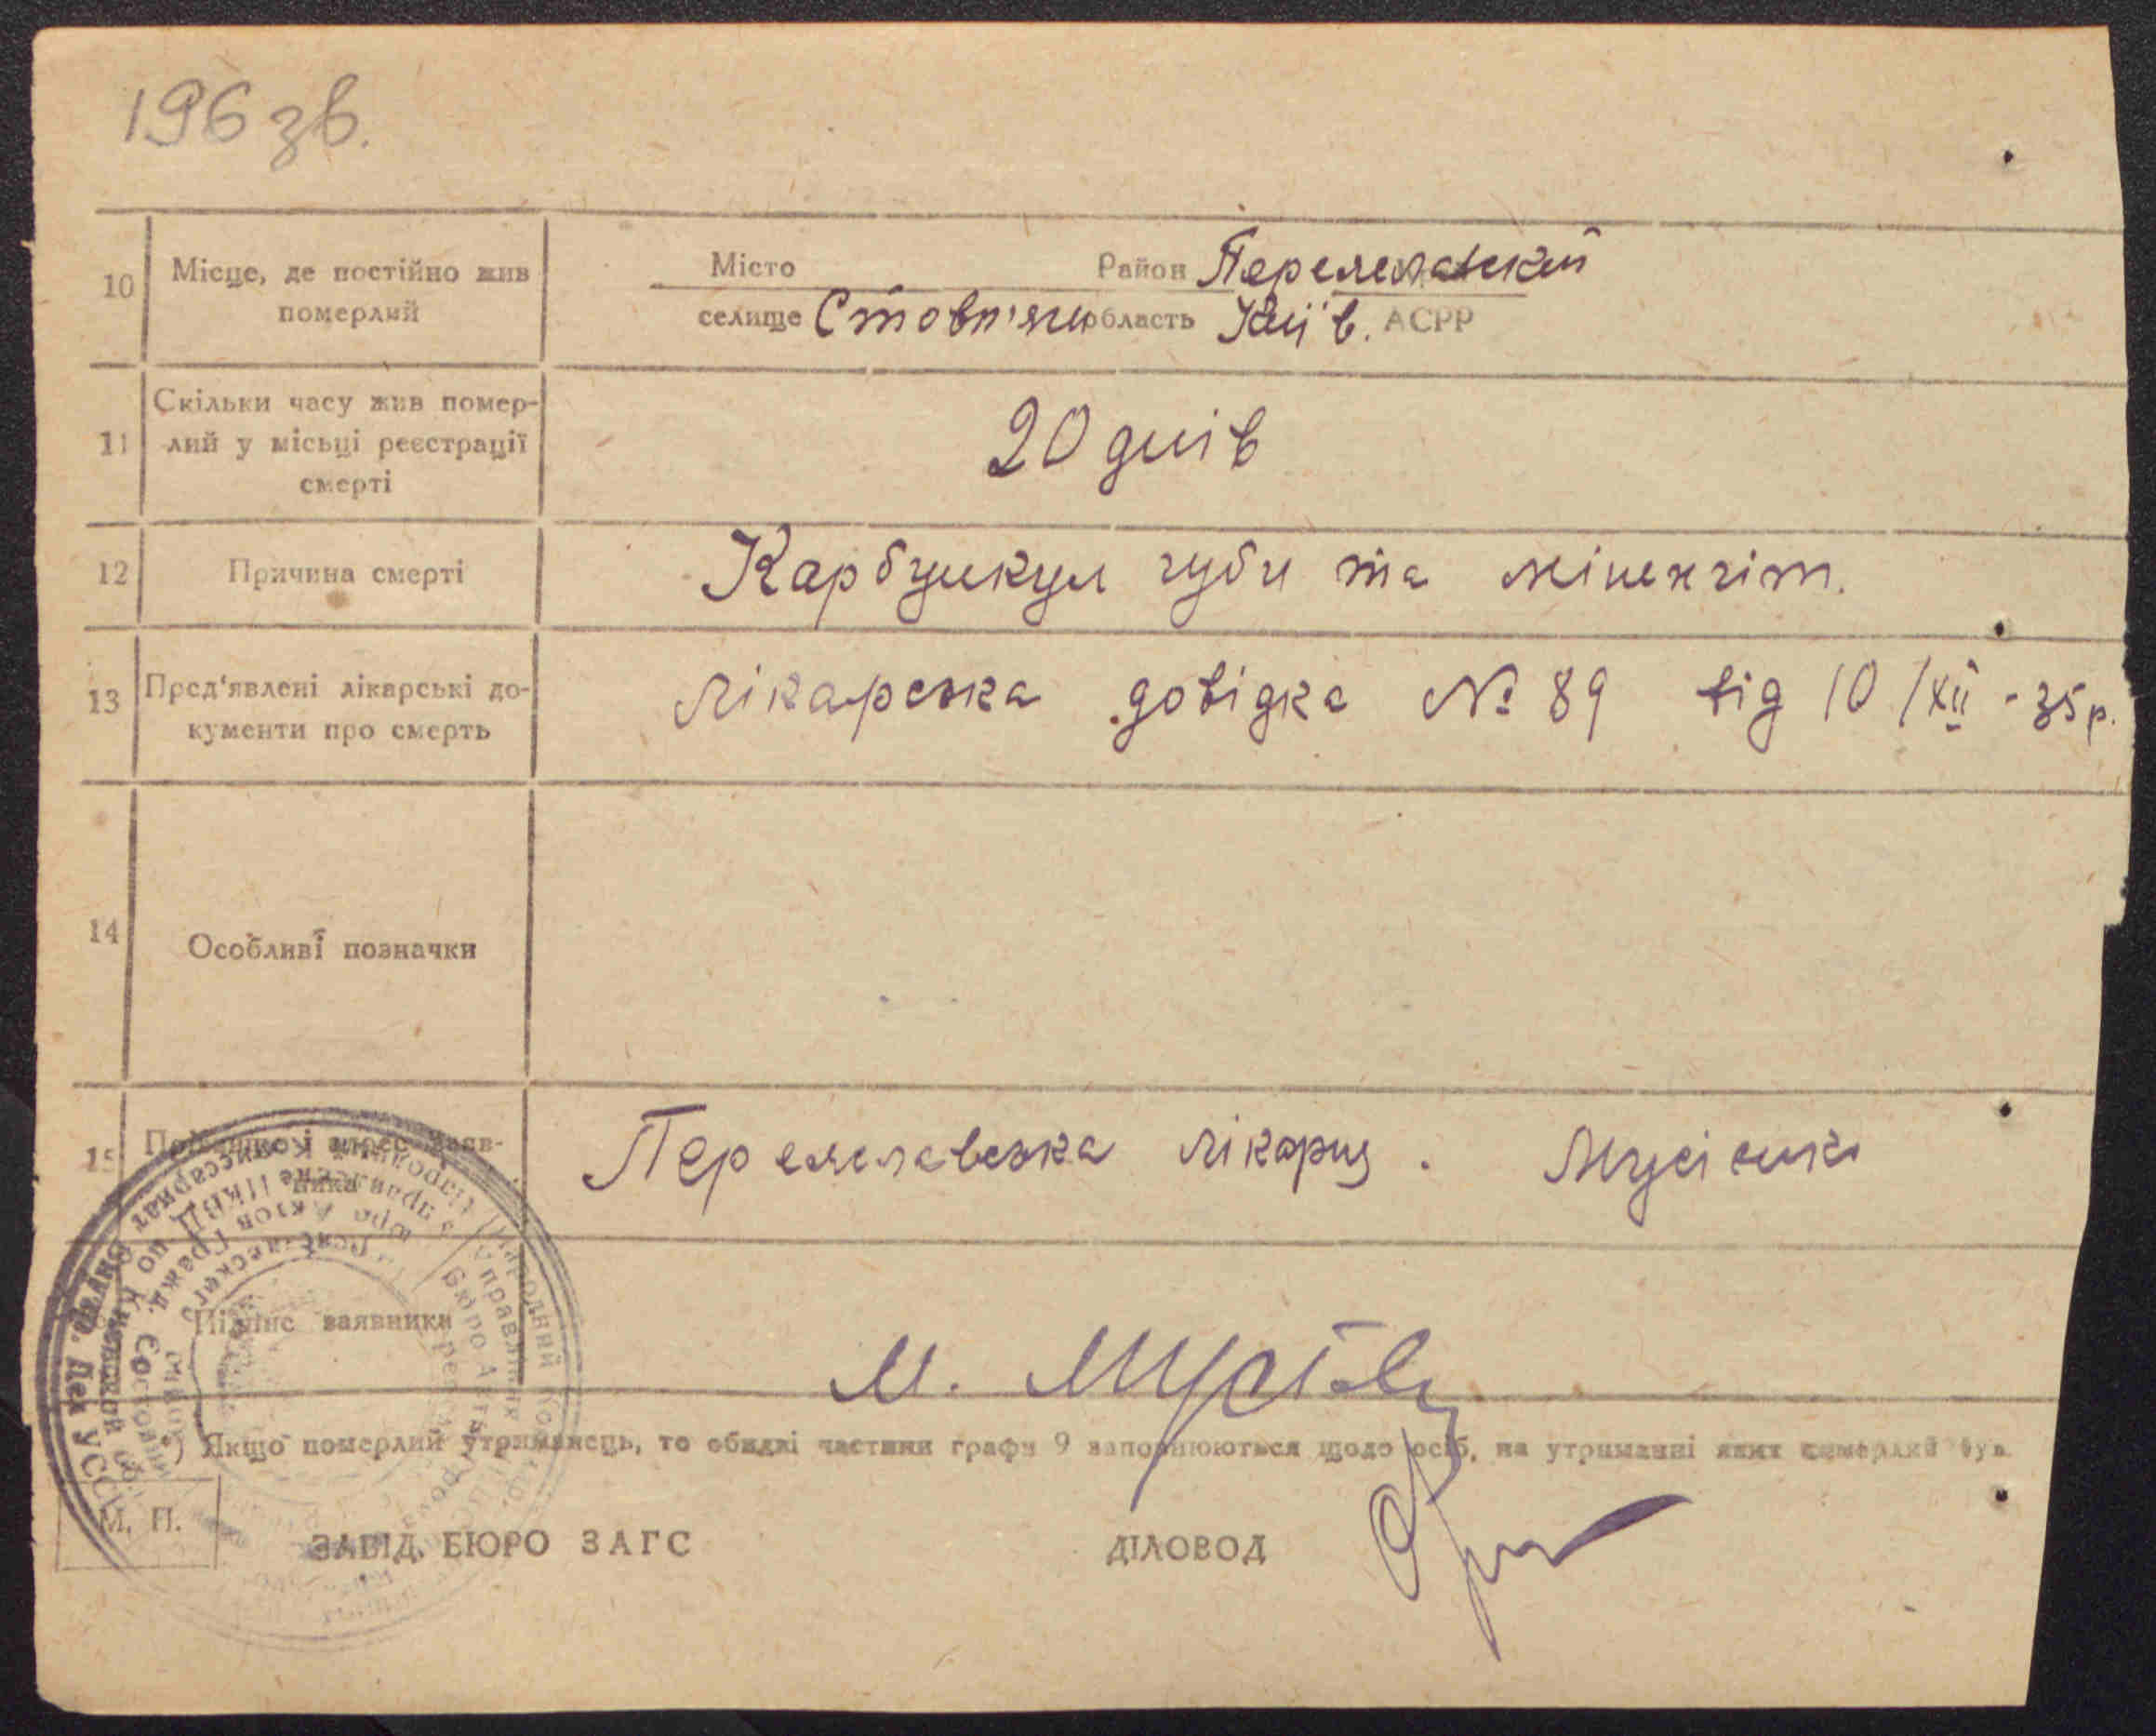 196 зв.
10 Місце, де постійно жив померлий
Місто Район Переяславський
селище Стовп'яги область Київ. АСРР
11 Скільки часу жив помер-
лий у місьці реєстрації
смерті
20 днів
12 Причина смерті Карбункул губи та міненгіт.
13 Пред'явлені лікарські до-
кументи про смерть
Лікарська довідка № 89 від 10/XII - 35 р.
14 Особливі позначки
15
Переяславська лікарня.
Підпис заявника
М.
*) Якщо померлий утриманець, то обидві частини графи 9 заповнюються щодо осіб, на утриманні яких померлий був
М. П.
ЗАВІД. БЮРО ЗАГС ДІЛОВОД